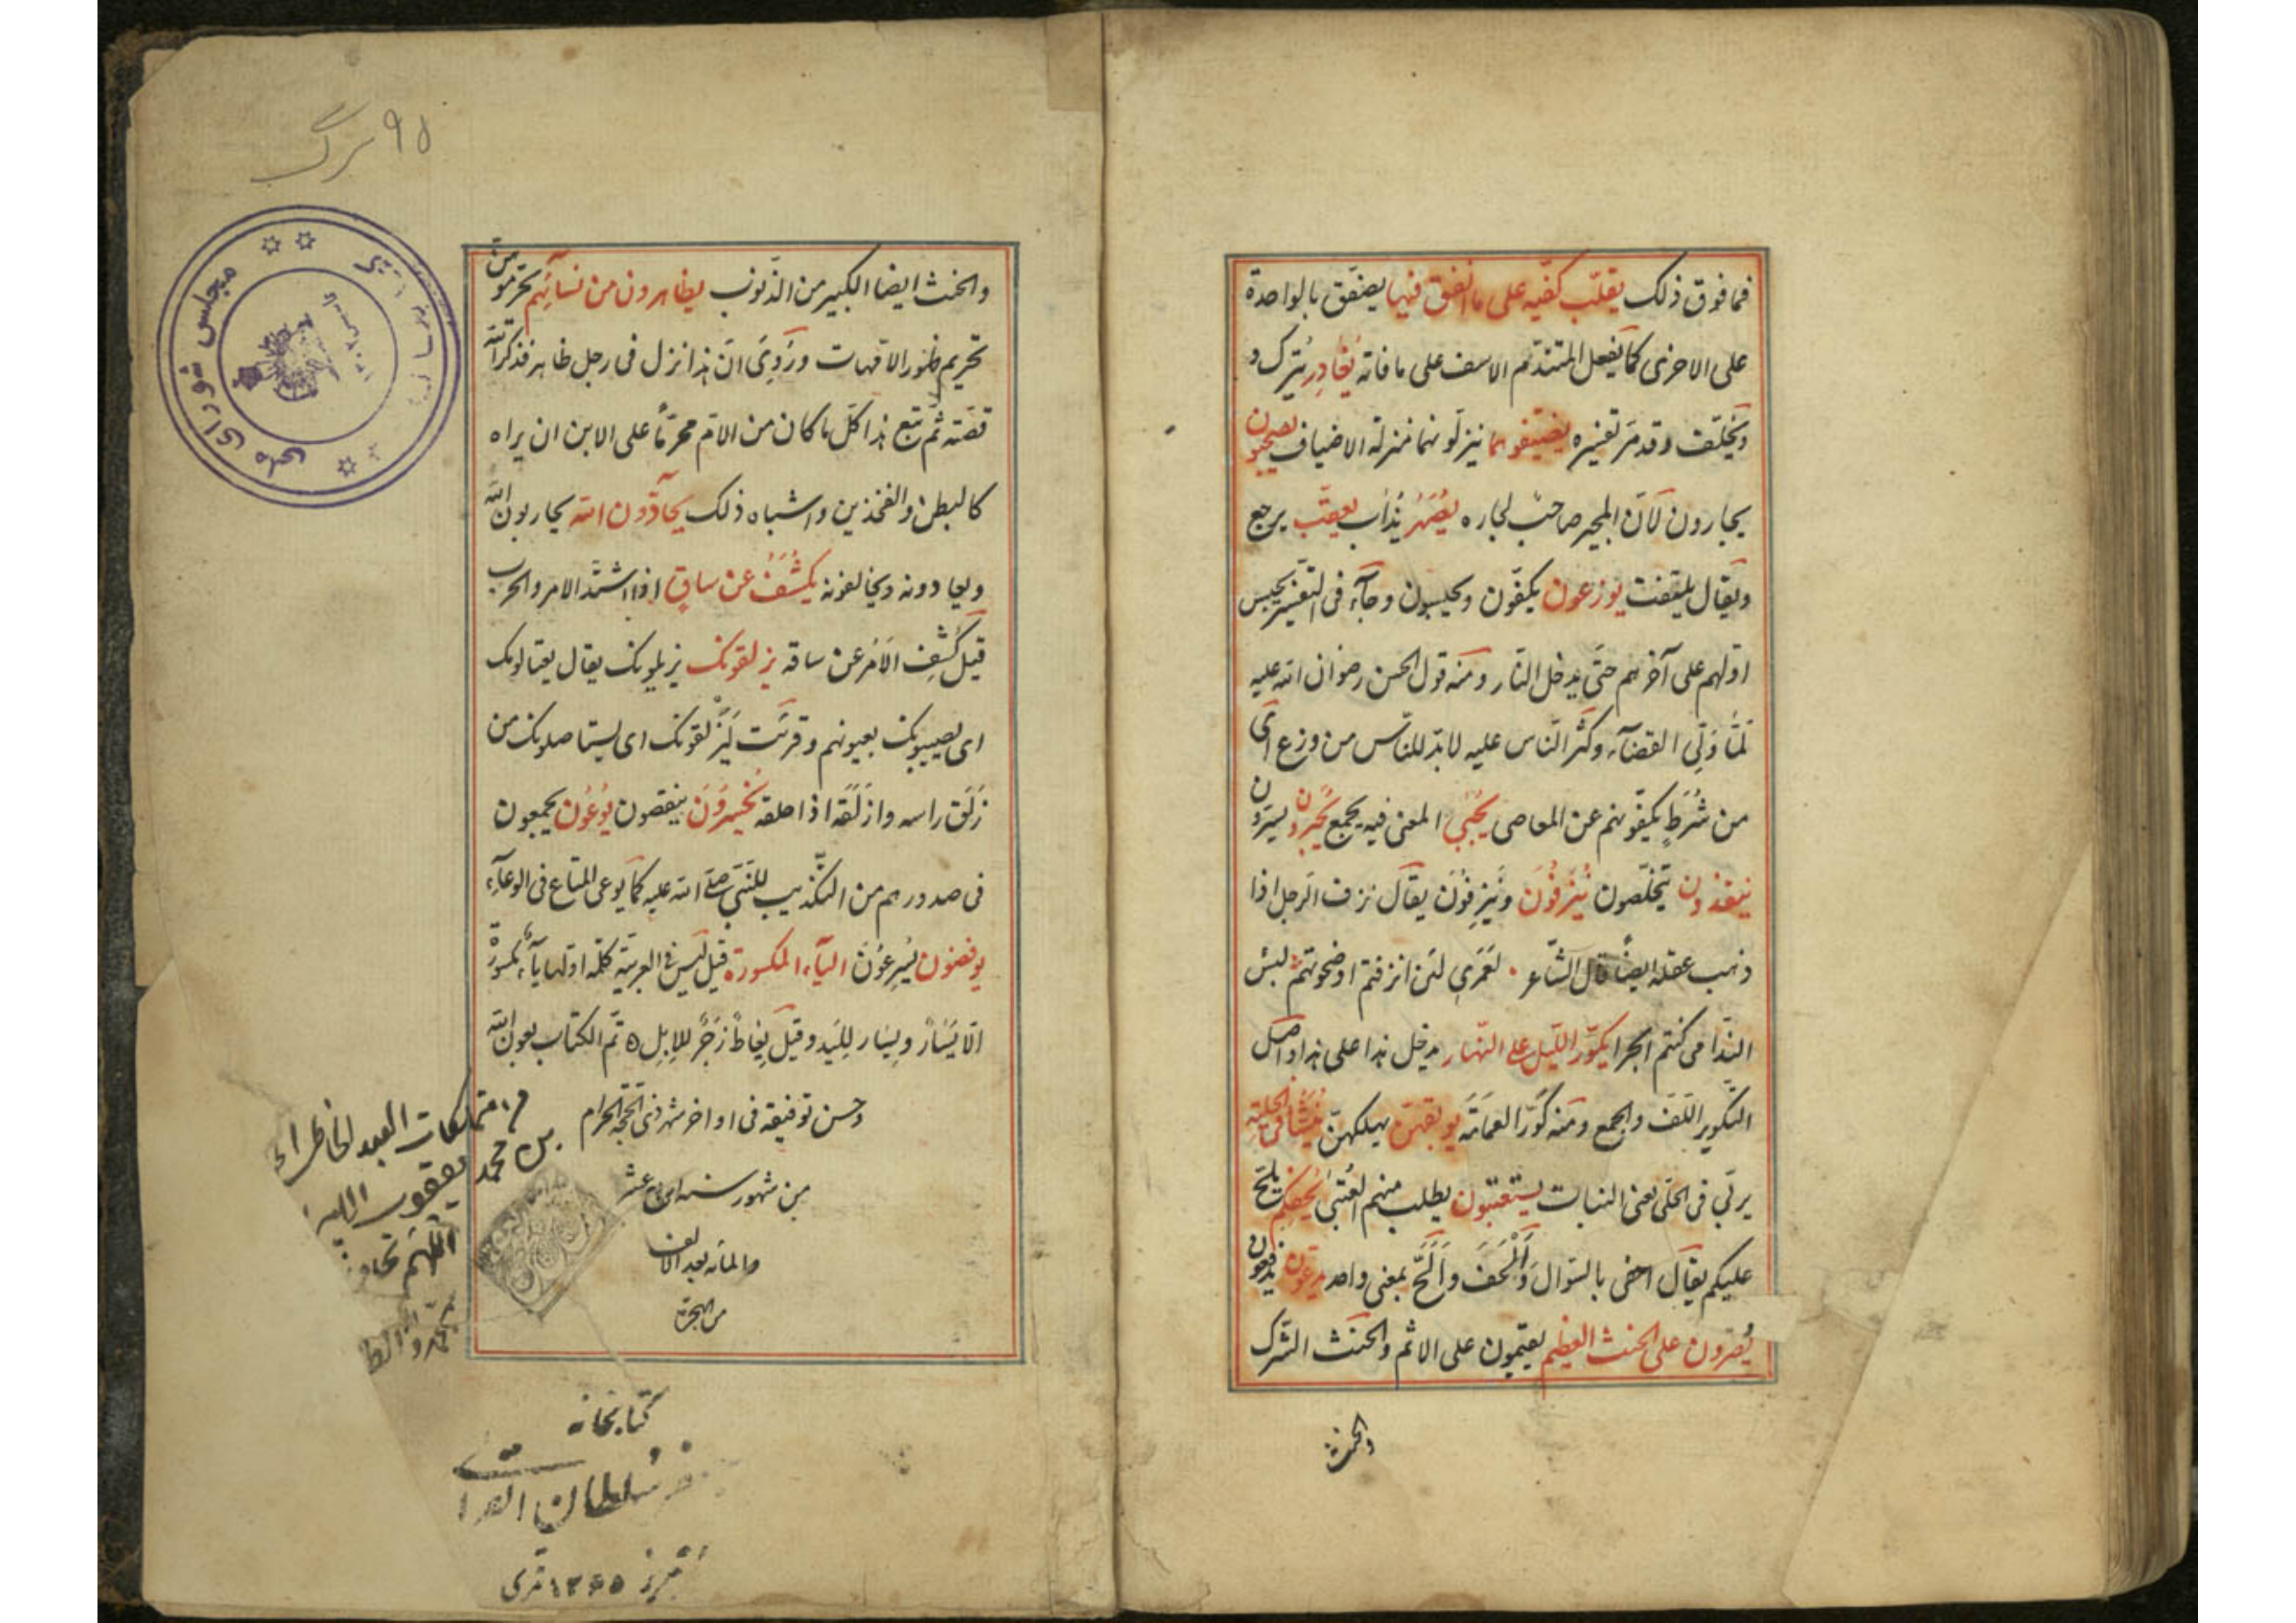 فما فوق ذلک یقلّب کفّیه علی ما انفق فیها یصفّق بالواحدة
علی الاخری کما یفعل المتندّم الاسف علی ما فاته یُغادِر یُترک و
ویُخلّف وقد مرّ تفسیره یضیّفوهما ینزلونهما منزلة الاضیاف یصحبون
یجارون لانّ المجیر صاحبٌ لجاره یُصْهَرُ یُذاب یعقّب یرجع
ویقال یلتفت یوزعون یکفّون ویحبسون وجآء فی التفسیر یحبس
اوّلهم علی آخرهم حتّی یدخل النّار ومنه قول الحسن رضوان الله علیه
لمّا وُلّی القضآء وکثر النّاس علیه لابدّ للنّاس من وزع ای
من شُرَطٍ یکفّونهم عن المعاصی یُجْبی المعنی فیه یجمع یُحبرون یسرّون
ینقذون یتخلّصون یُنزَفُونَ ویُنزِفُونَ یقال نزف الرجل اذا
ذهب عقله ایضاً قال الشّاعر لعَمْری لئن انزفتم او صحوتم لبئس
النّدامی کنتم ابجرا یکوّر اللّیل علی النّهار یدخل هذا علی هذا واصل
التکویر اللّف والجمع ومنه کُوّر العمامة یوبقهنّ یهلکهنّ یُنَشَّأُ فی الحلیة
یربّی فی الحلی یعنی البنات یستعتبون یطلب منهم العُتبی یُحفِکم یلحّ
علیکم یقال احفی بالسّوال وَاَلْحَفَ واَلَحَّ بمعنی واحد یدعّون یدفعون
یُصرّون علی الحنث العظیم یقیمون علی الاثم والحنث الشّرک
والحنث
۹۵ برگ
مجلس شورای ملی
والحنث ایضا الکبیر من الذّنوب یظاهرون من نسآئهم یحرّمونهن
تحریم ظهور الامّهات ورُوِیَ انّ هذا نزل فی رجل ظاهر فذکر الله
قصّته ثمّ تبع هذا کلّ ما کان من الامّ محرّماً علی الابن ان یراه
کالبطن والفخذین واشباه ذلک یحآدّون الله یحاربون الله
ویعادونه ویخالفونه یُکشَفُ عن ساقٍ اذا اشتدّ الامر والحرب
قیل کُشِف الاَمر عن ساقه یزلقونک یزیلونک یقال یعتالونک
ای یصیبونک بعیونهم وقرئت لَیَزْلقونک ای یستاصلونک من
زَلَقَ راسه وازلقه اذا حلقه یُخسِرُونَ ینقصون یُوعُون یجمعون
فی صدورهم من التکذیب للنّبی صلی الله علیه کما یوعی المتاع فی الوعآء
یوفضون یُسرِعُونَ الیآء المکسورة قیل لیس فی العربیّة کلمة اولها یآء مکسورة
الّا یَسَار ویِسَار للیَد وقیل یِعَاطْ زَجْرٌ للاِبِل ه تمّ الکتاب بعون الله
وحسن توفیقه فی اواخر شهر ذی الحجّة الحرام
من شهور سنه عشر
والمائه بعد الالف
من الهجرة
من متملکات العبد الخاطی
بن محمد یعقوب
اللّهم
کتابخانه
سلطان القراء
تبریز ۱۳۶۵ قمری